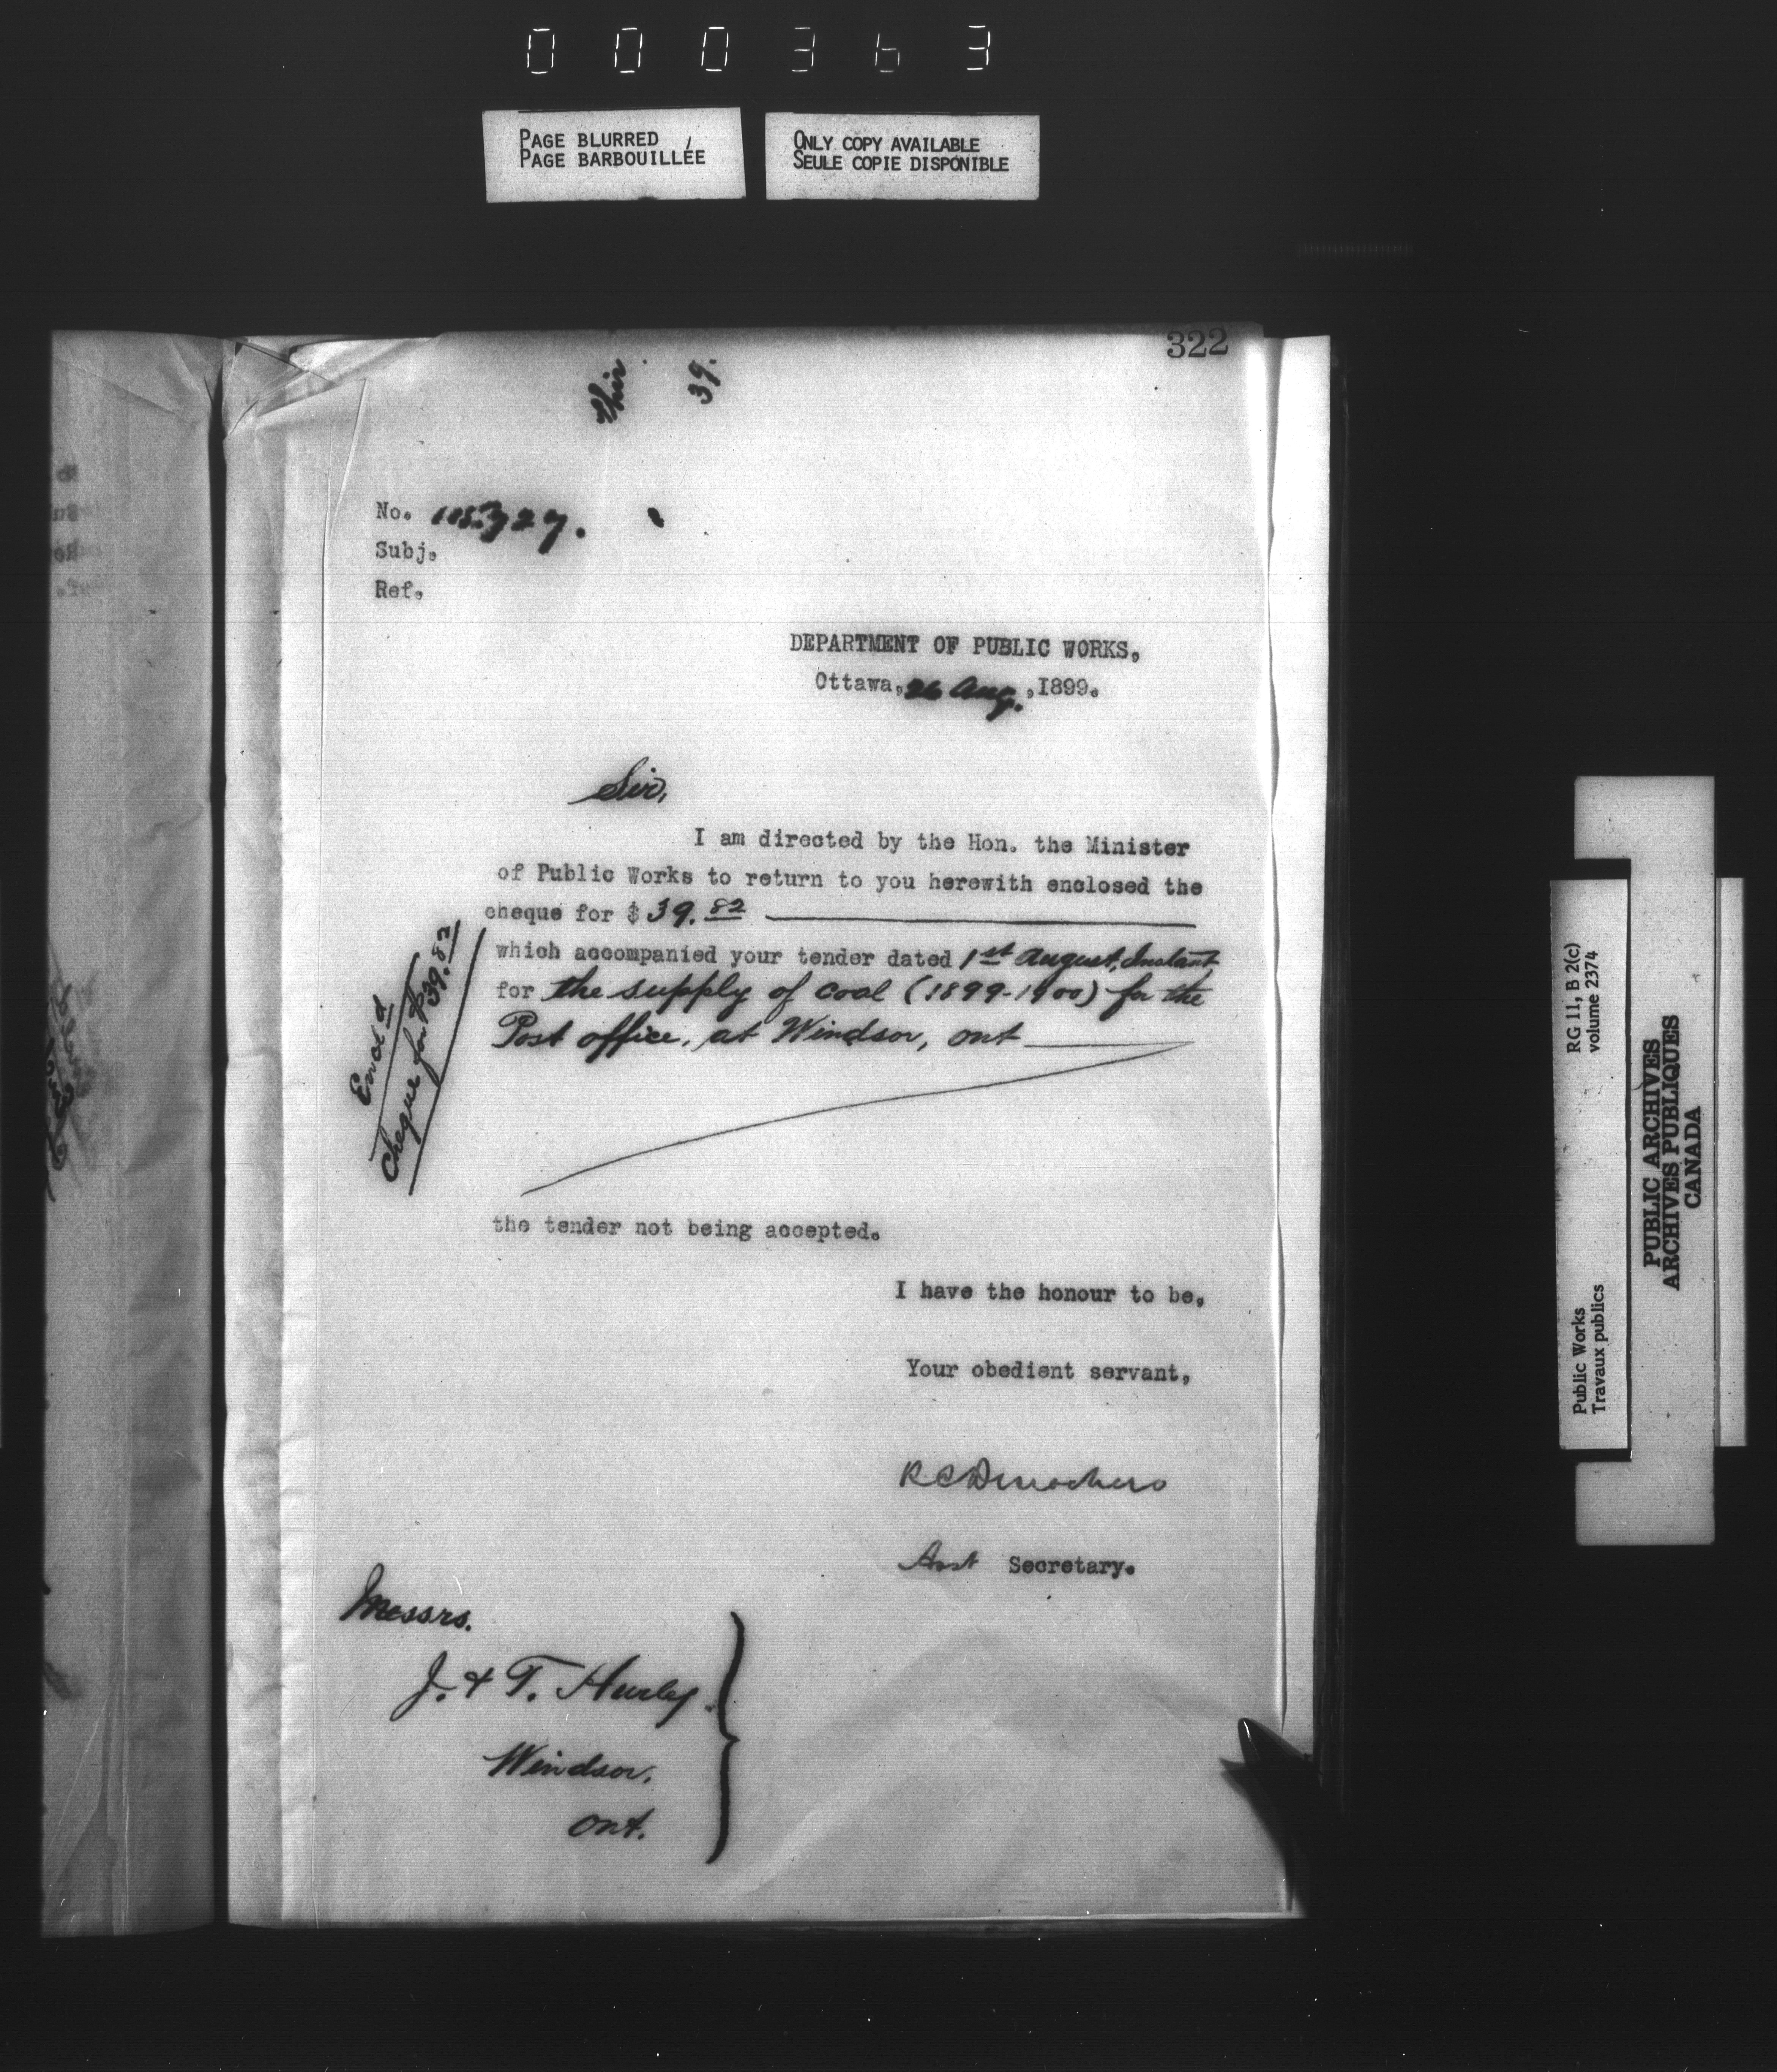 000363
PAGE BLURRED
PAGE BARBOUILLÉE
ONLY COPY AVAILABLE
SEULE COPIE DISPONIBLE
322
39.
No.
Subj.
Ref.
DEPARTMENT OF PUBLIC WORKS,
Ottawa, 26 Aug. ,1899.
Sir,
I am directed by the Hon. the Minister
of Public Works to return to you herewith enclosed the
cheque for $ 39.82
which accompanied your tender dated 1st August, Instant
for the supply of coal (1899-1900) for the
Post office, at Windsor, ont
Encl d
Cheque for $39.82
the tender not being accepted.
I have the honour to be,
Your obedient servant,
R C Desrochers
Asst Secretary.
Messrs.
J. & T. Hurley
Windsor.
ont.
RG 11, B 2(c)
volume 2374
Public Works
Travaux publics
PUBLIC ARCHIVES
ARCHIVES PUBLIQUES
CANADA